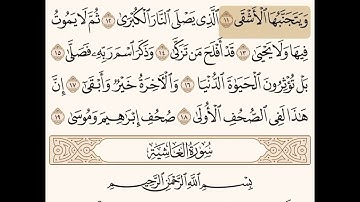 وَيَتَجَنَّبُهَا الْأَشْقَى ١١ الَّذِي يَصْلَى النَّارَ الْكُبْرَىٰ ١٢ ثُمَّ لَا يَمُوتُ
فِيهَا وَلَا يَحْيَىٰ ١٣ قَدْ أَفْلَحَ مَن تَزَكَّىٰ ١٤ وَذَكَرَ اسْمَ رَبِّهِ فَصَلَّىٰ ١٥
بَلْ تُؤْثِرُونَ الْحَيَوٰةَ الدُّنْيَا ١٦ وَالْآخِرَةُ خَيْرٌ وَأَبْقَىٰ ١٧ إِنَّ
هَٰذَا لَفِي الصُّحُفِ الْأُولَىٰ ١٨ صُحُفِ إِبْرَاهِيمَ وَمُوسَىٰ ١٩
سُورَةُ الْغَاشِيَةِ
بِسْمِ اللَّهِ الرَّحْمَٰنِ الرَّحِيمِ